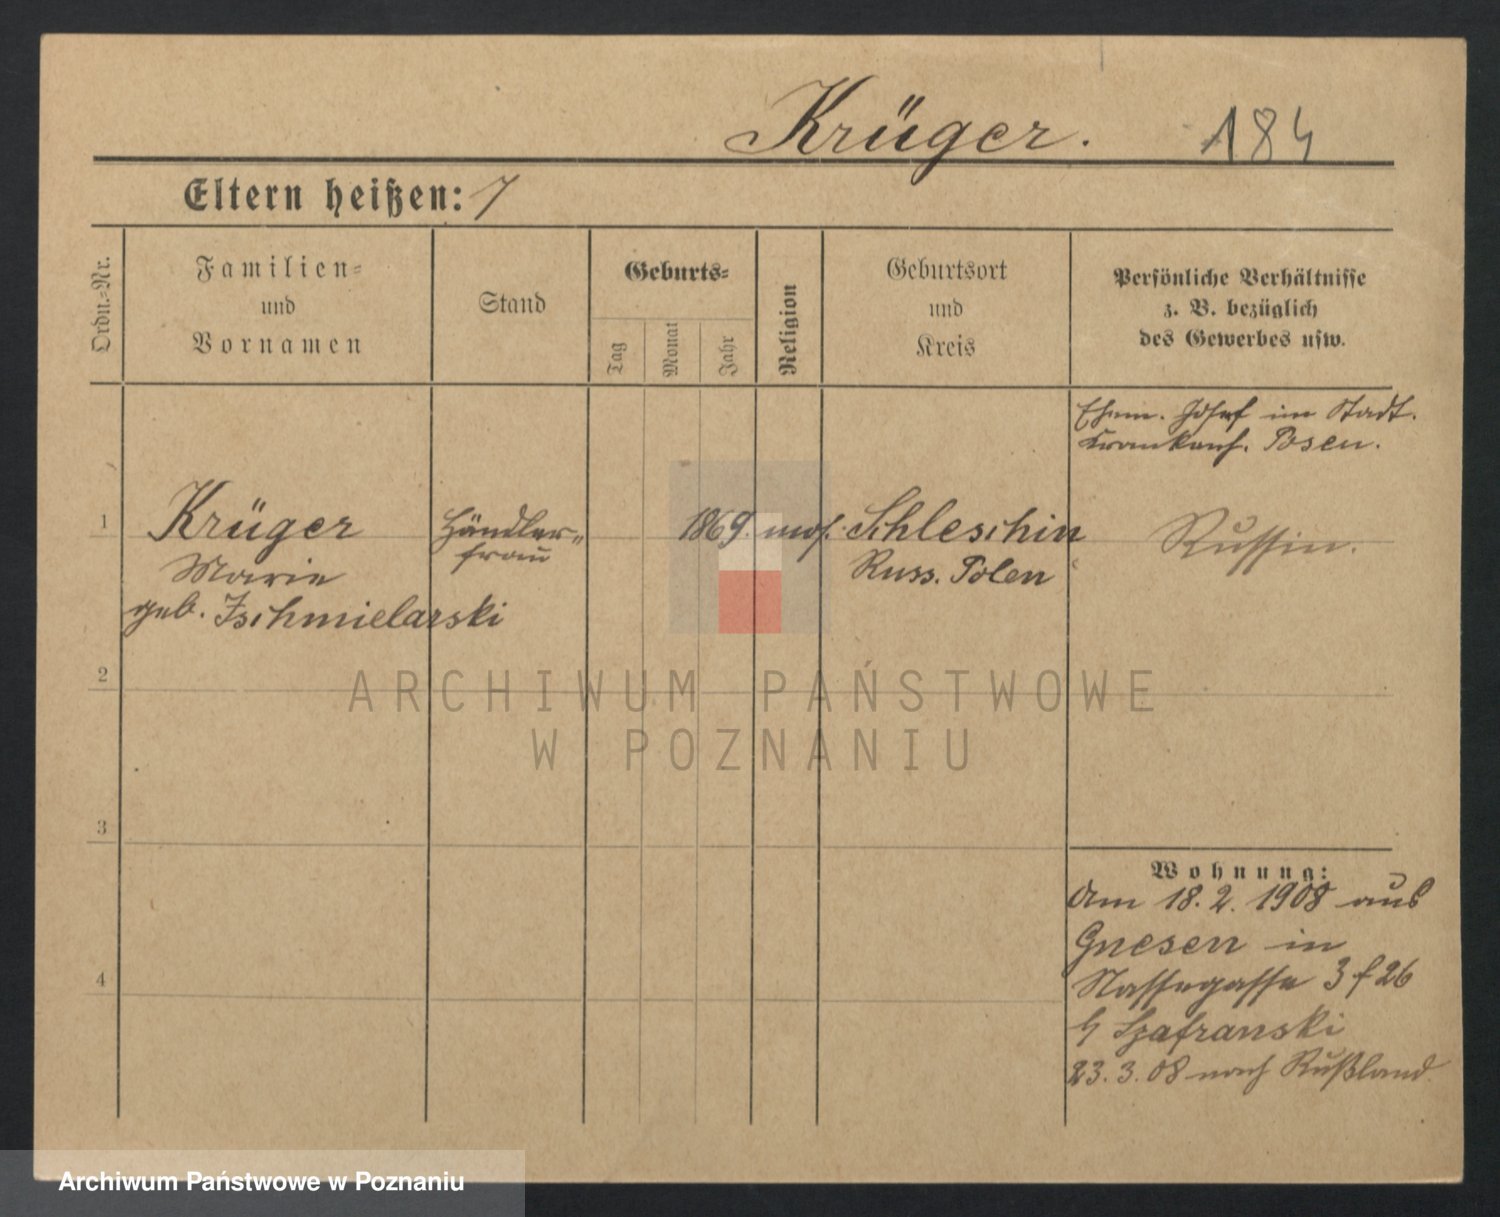 Krüger. 184
Eltern heißen:
Ordn.-Nr.
Familien-
und
Vornamen
Stand
Geburts-
Tag
Monat
Jahr
Religion
Geburtsort
und
Kreis
Persönliche Verhältnisse
z. B. bezüglich
des Gewerbes usw.
Ehem. Josef im Stadt.
Krankenh. Posen.
1 Krüger Händler- 1869. mos. Schleschin Russin.
Marie frau Russ. Polen
geb. Zschmielarski
2
3
4
Wohnung:
Am 18.2. 1908 aus
Gnesen in
Nassegasse 3 f 26
b Szafranski
23. 3. 08 nach Rußland.
ARCHIWUM PAŃSTWOWE
W POZNANIU
Archiwum Państwowe w Poznaniu